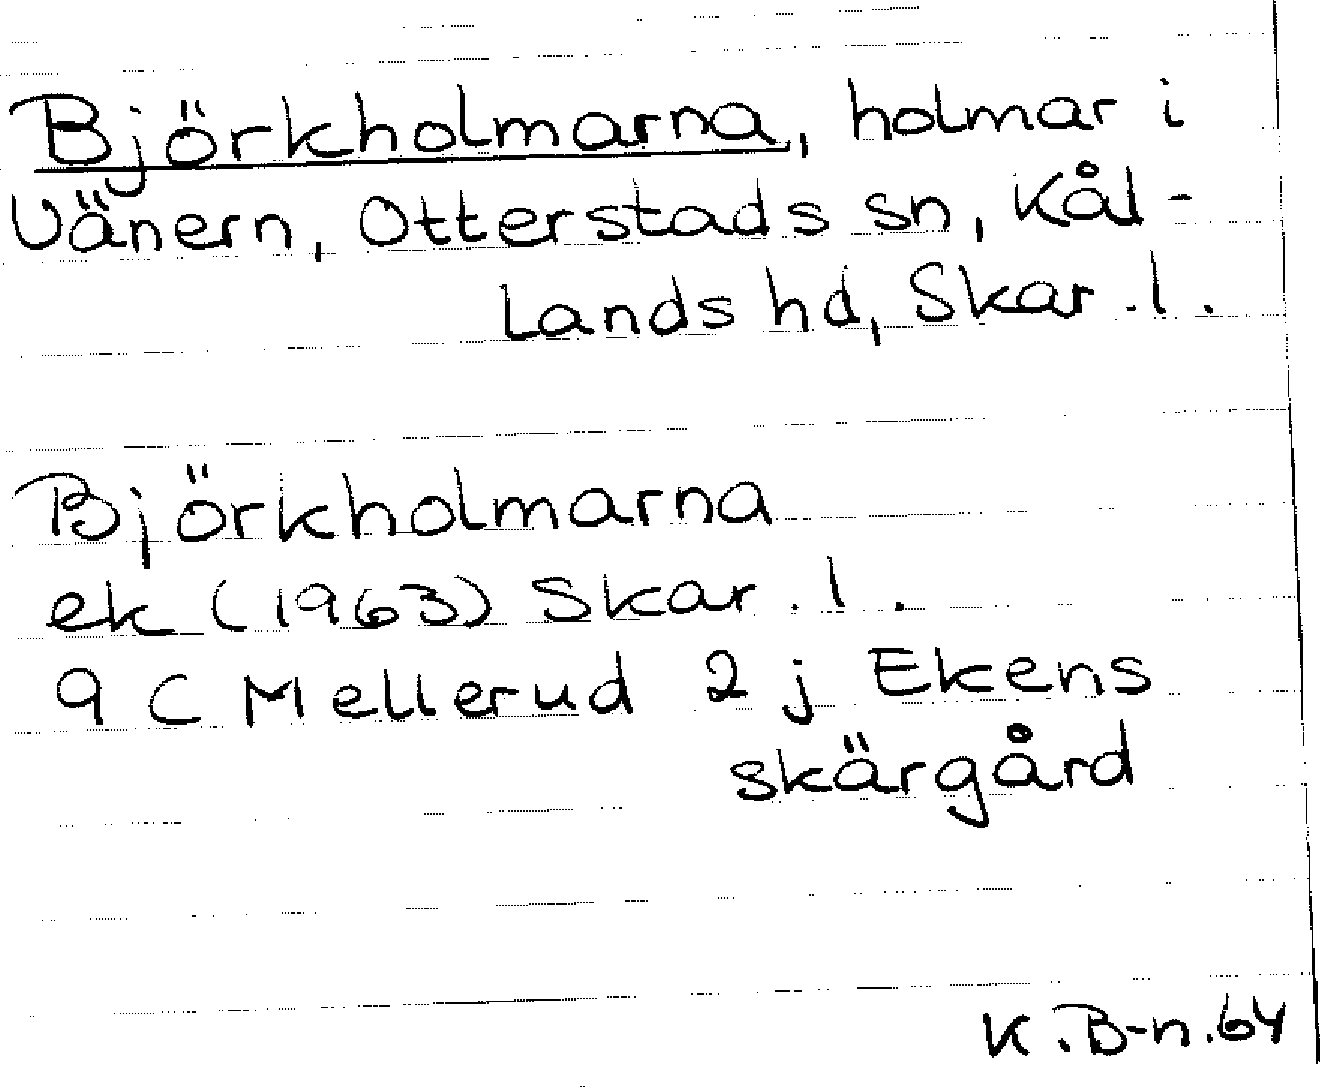 Björkholmarna, holmar i
Vänern, Otterstads sn, Kål-
lands hd, Skar. l.
Björkholmarna
ek (1963) Skar. l.
9 C Mellerud 2 j Ekens
skärgård
K. B-n. 64